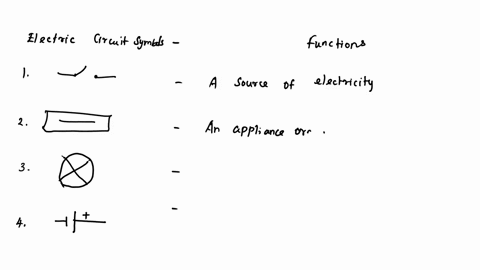 Electric Circuit Symbols - Functions
1. - A source of electricity
2. - An appliance or
3. -
4. + -